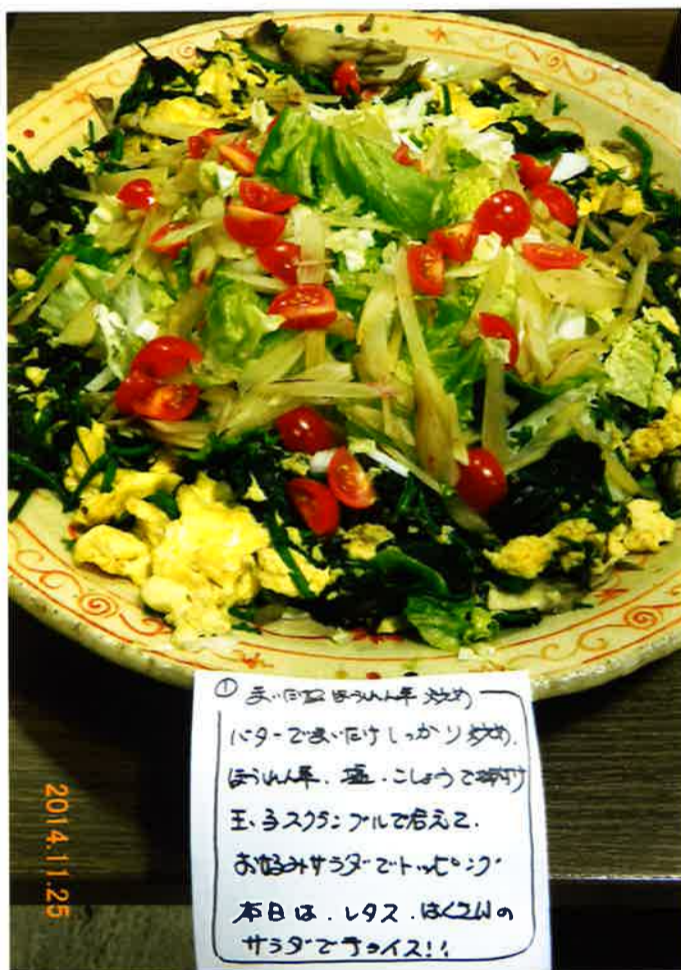 ① まいたけほうれん草炒め
バターでまいたけしっかり炒め、
ほうれん草、塩、こしょうで味付け
玉子スクランブルで合えて、
お好みサラダでトッピング
本日は、レタス、はくさいの
サラダでチョイス!!
2014.11.25